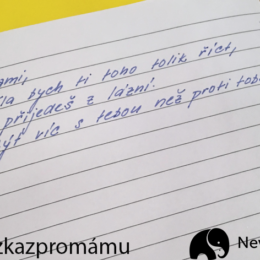 mi,
la bych ti toho tolik říct,
přijedeš z lázní.
být víc s tebou než proti tobě
zkazpromámu
Nev